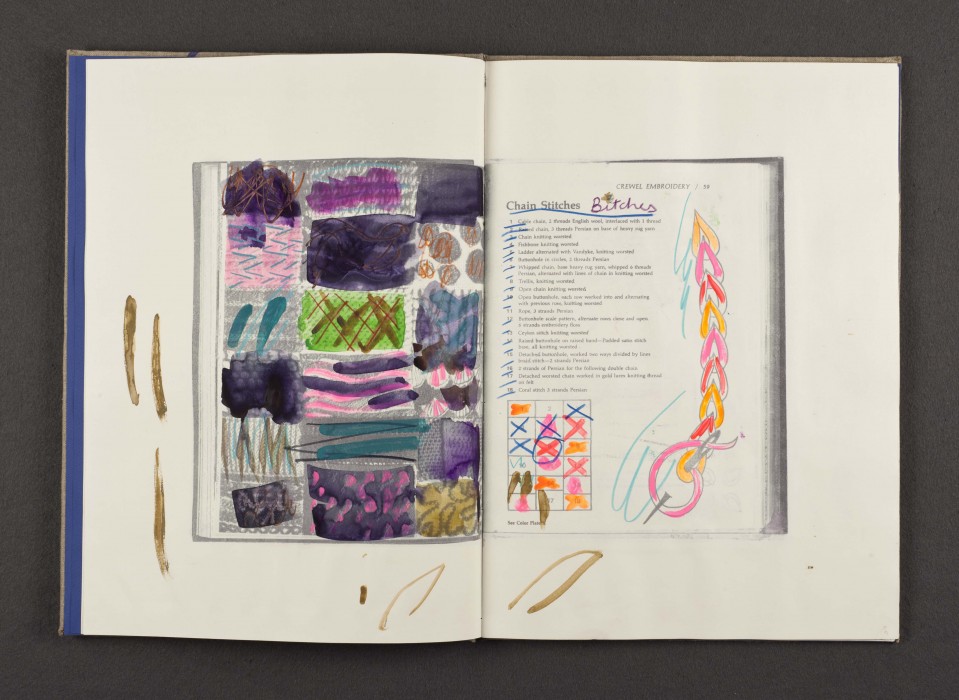 CREWEL EMBROIDERY / 59
Chain Stitches Bitches
chain, 2 threads English wool, interlaced with 1 thread
chain, 3 threads Persian on base of heavy rug yarn
Chain knitting worsted
Fishbone knitting worsted
Ladder alternated with Vandyke, knitting worsted
Buttonhole in circles, 2 threads Persian
Whipped chain, base heavy rug yarn, whipped 6 threads
Persian, alternated with lines of chain in knitting worsted
Trellis, knitting worsted
Open chain knitting worsted
Open buttonhole, each row worked into and alternating
with previous row, knitting worsted
Rope, 3 strands Persian
Buttonhole scale pattern, alternate rows close and open
6 strands embroidery floss
Ceylon stitch knitting worsted
Raised buttonhole on raised band—Padded satin stitch
base, all knitting worsted
Detached buttonhole, worked two ways divided by lines
braid stitch—2 strands Persian
2 strands of Persian for the following double chain
Detached worsted chain worked in gold lurex knitting thread
on felt
Coral stitch 3 strands Persian
See Color Plate